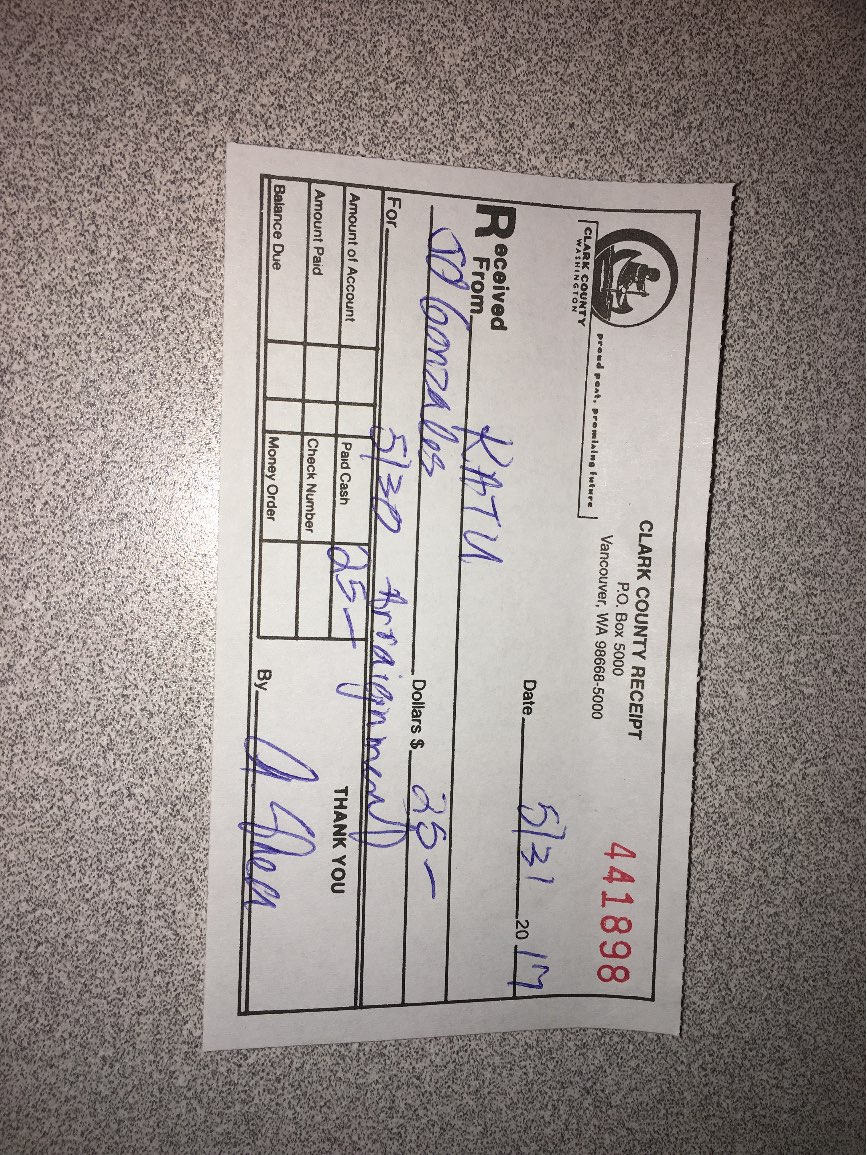 CLARK COUNTY
WASHINGTON
proud past, promising future
CLARK COUNTY RECEIPT
P.O. Box 5000
Vancouver, WA 98668-5000
441898
Date 5/31 2017
Received From KATU
JD Gonzales Dollars $ 25-
For 5/30 Arraignment
Amount of Account Paid Cash 25-
Amount Paid Check Number
Balance Due Money Order
THANK YOU
By